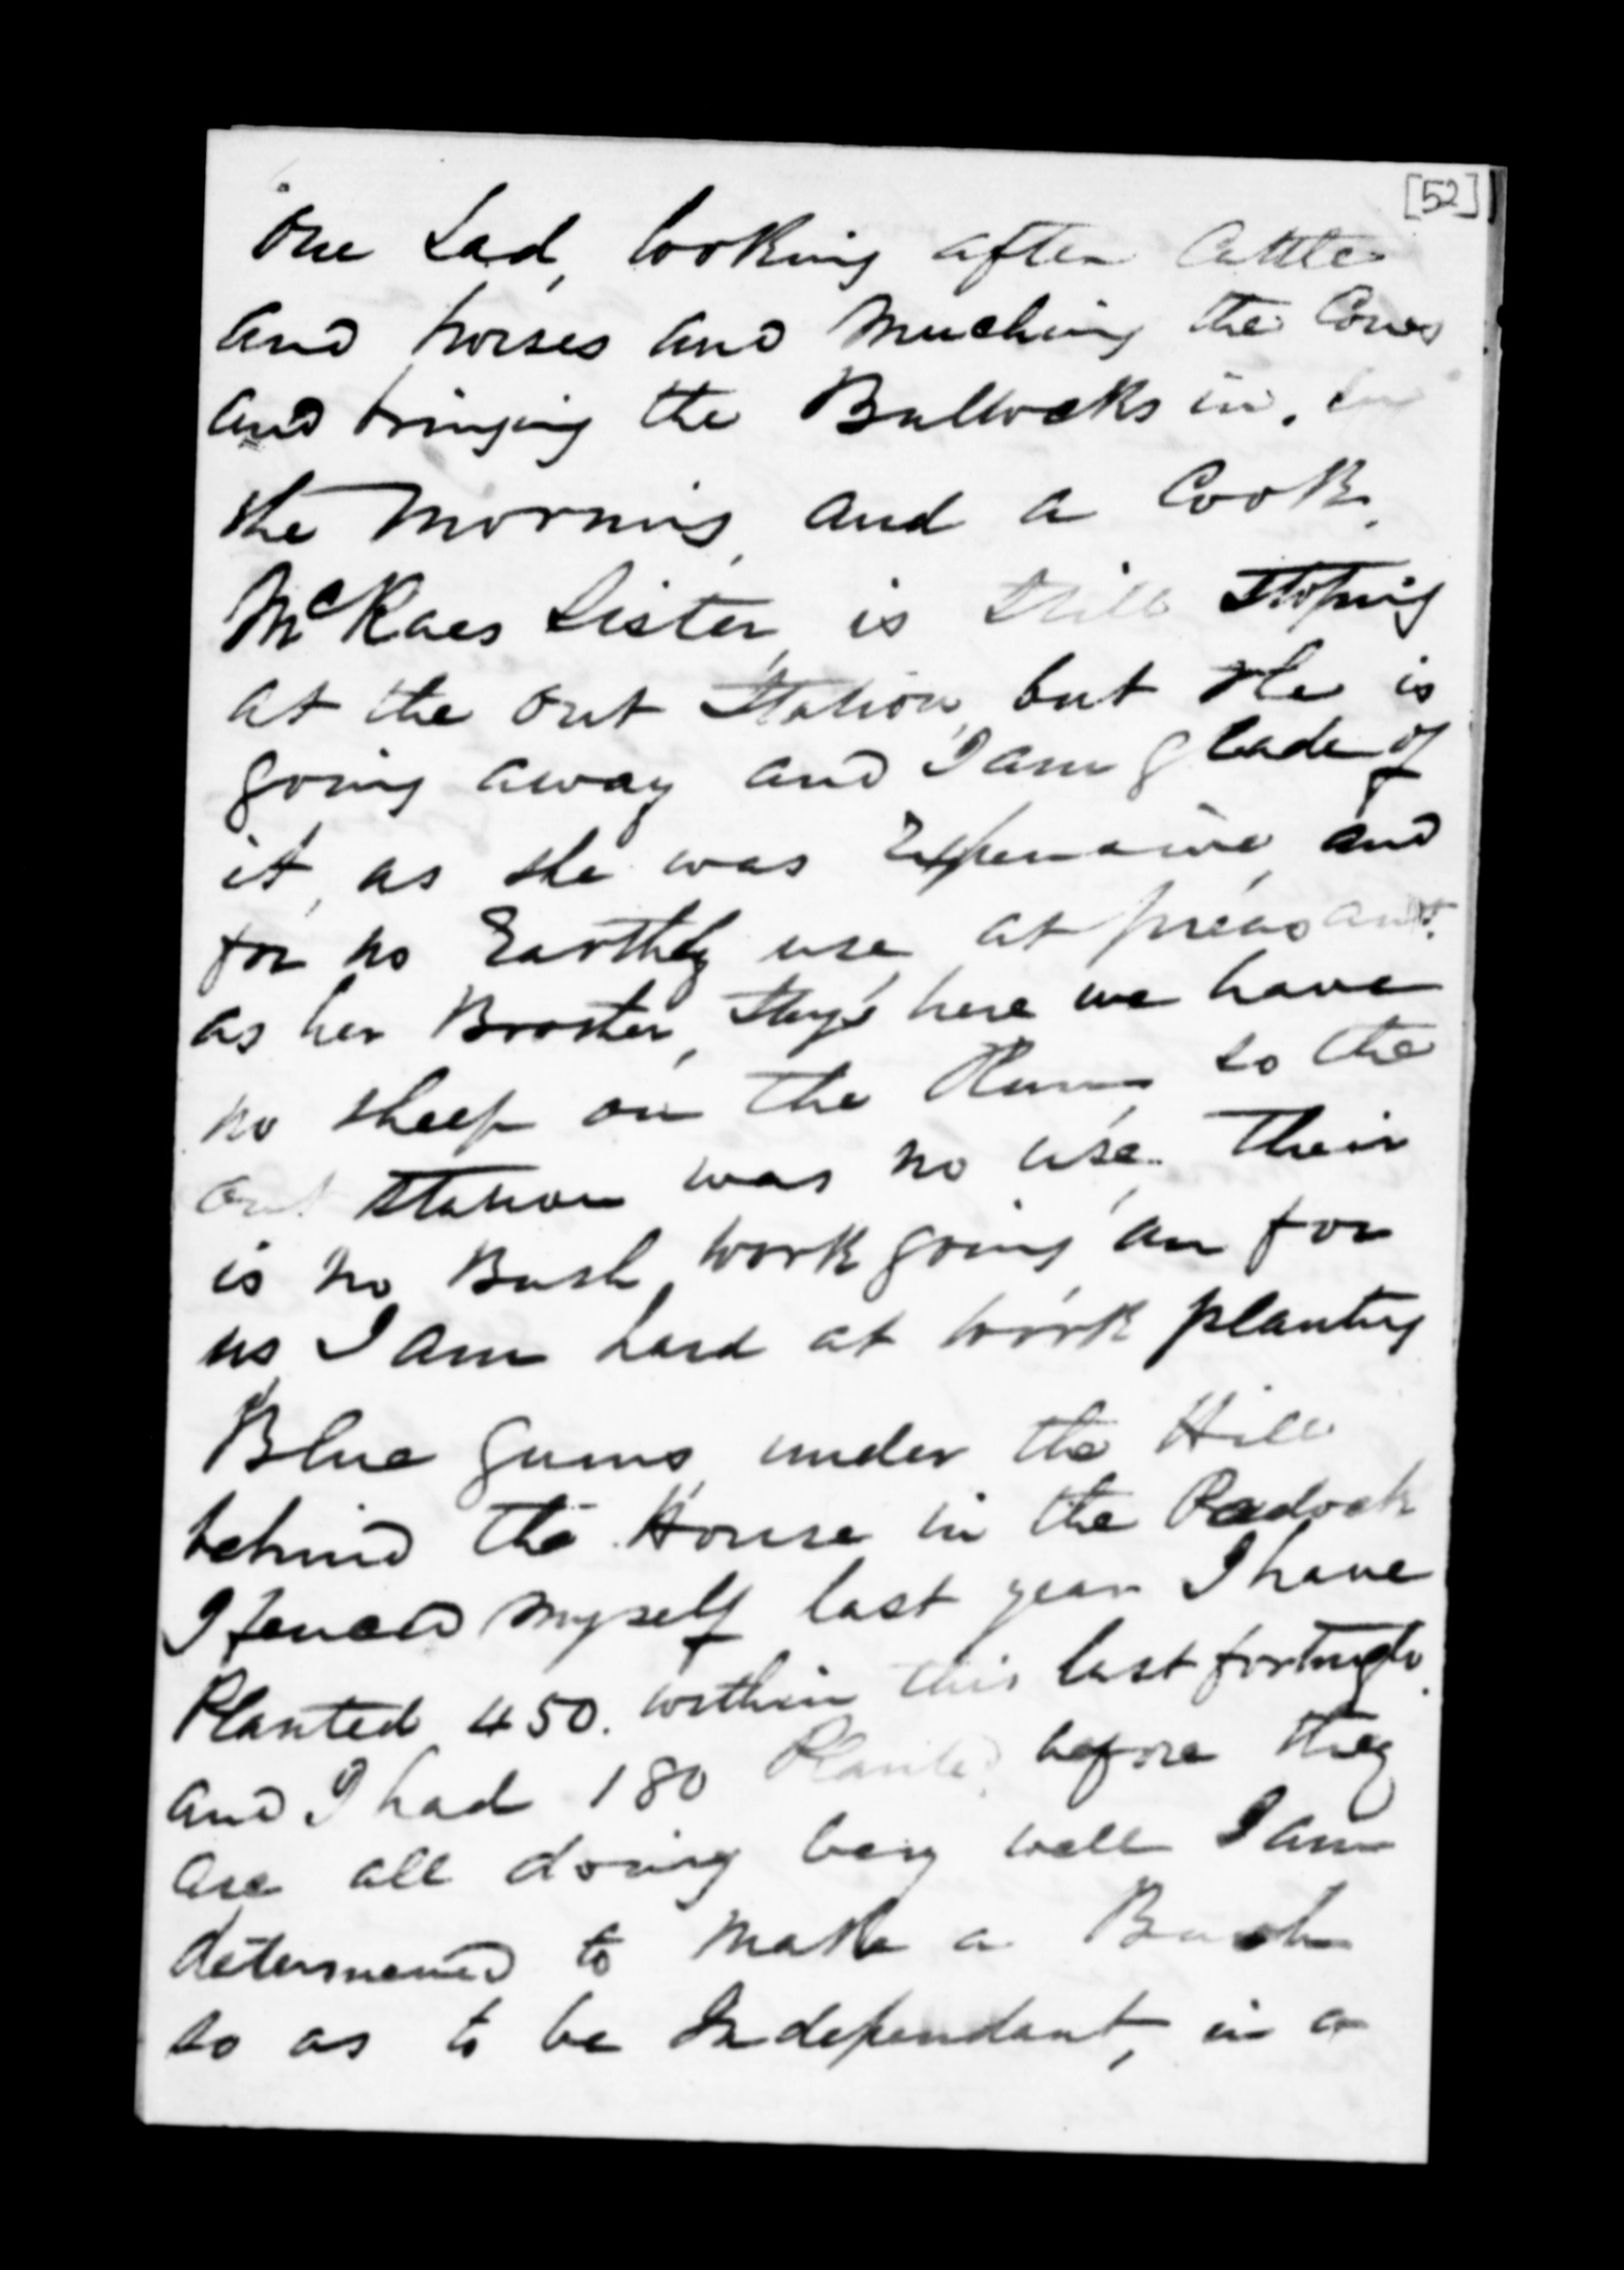 [52]
One Lad, looking after Cattle
and horses and Muching the Cows
and bringing the Bullocks in. in
the Morning, and a Cook.
McRaes Sister, is still Stoping
at the Out Station, but She is
going away and I am glade of
it, as she was Expensive, and
for no Earthly use, at preasant.
as her Brother, Stays here we have
no sheep on the Run, so the
out station was no use. Their
is no Bush, work going an for
us, I am hard at work planting
Blue gums, under the Hill
behind the House in the Padock
I fenced myself last year I have
Planted 450. within this last fortnight.
and I had 180 Planted, before they
are all doing very well I am
determened to Make a Bush
so as to be Independant, in a